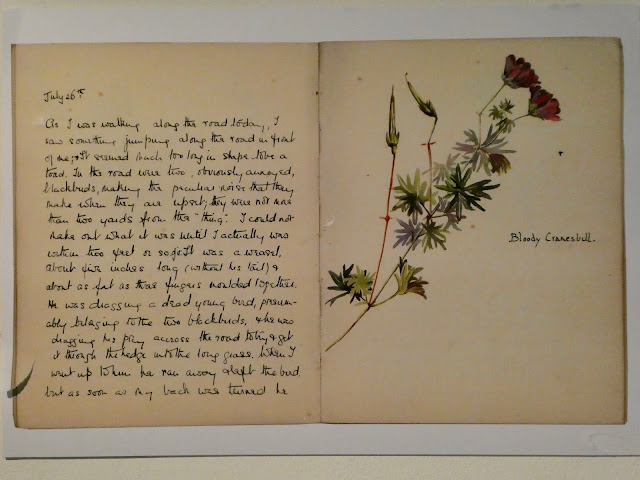 July 26th.
As I was walking along the road today, I
saw something jumping along the road in front
of me, & it seemed much too long in shape to be a
toad. In the road were two, obviously annoyed,
blackbirds, making the peculiar noise that they
make when they are upset; they were not more
than two yards from the "thing". I could not
make out what it was until I actually was
within two feet or so of it. It was a weasel,
about five inches long (without his tail) &
about as fat as three fingers moulded together.
He was dragging a dead young bird, presum-
ably belonging to the two blackbirds, & he was
dragging his prey accross the road to try & get
it through the hedge into the long grass. When I
went up to him he ran away & left the bird
but as soon as my back was turned he
Bloody Cranesbill.